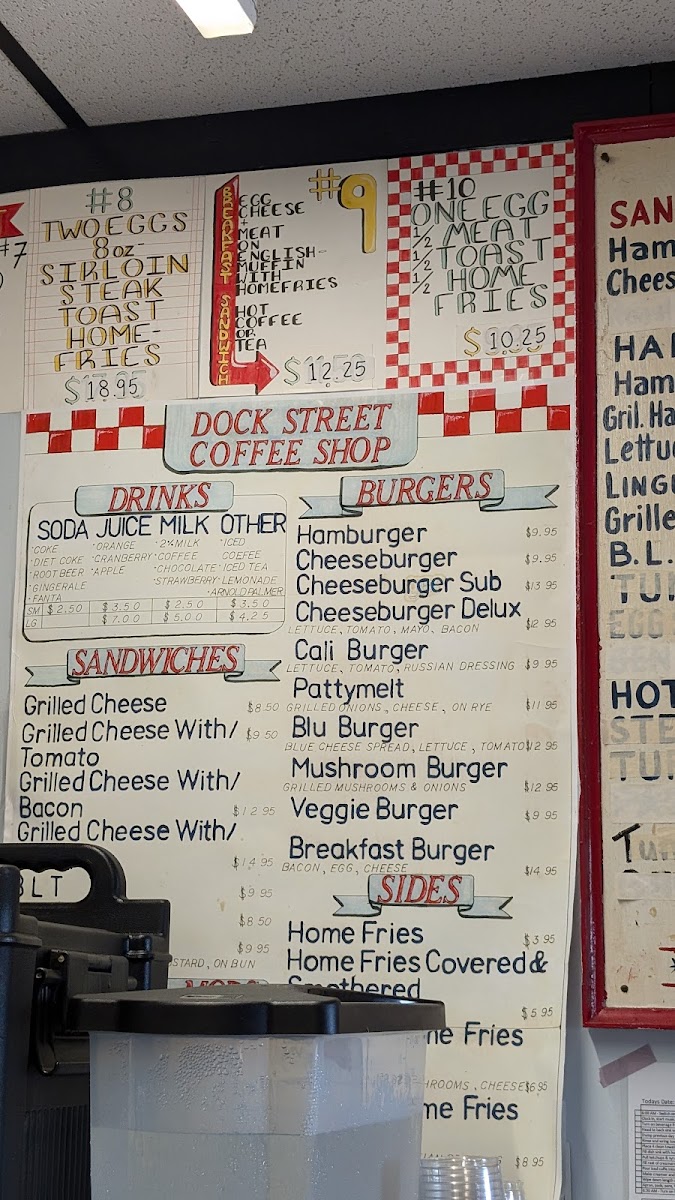 #7
#8
TWO EGGS
8oz
SIRLOIN
STEAK
TOAST
HOME-
FRIES
$18.95
BREAKFAST SANDWICH
#9
EGG
CHEESE
+
MEAT
ON
ENGLISH-
MUFFIN
WITH
HOMEFRIES
HOT
COFFEE
OR
TEA
$12.25
#10
ONE EGG
1/2 MEAT
1/2 TOAST
1/2 HOME
FRIES
$10.25
DOCK STREET
COFFEE SHOP
DRINKS
SODA JUICE MILK OTHER
·COKE ·ORANGE ·2% MILK ·ICED
·DIET COKE ·CRANBERRY ·COFFEE COFEEE
·ROOT BEER ·APPLE ·CHOCOLATE ·ICED TEA
·GINGERALE ·STRAWBERRY ·LEMONADE
·FANTA ·ARNOLD PALMER
SM $2.50 $3.50 $2.50 $3.50
LG $7.00 $5.00 $4.25
SANDWICHES
Grilled Cheese $8.50
Grilled Cheese With/ $9.50
Tomato
Grilled Cheese With/
Bacon $12.95
Grilled Cheese With/
$14.95
BLT $9.95
$8.50
$9.95
STARD, ON BUN
BURGERS
Hamburger $9.95
Cheeseburger $9.95
Cheeseburger Sub $13.95
Cheeseburger Delux
LETTUCE, TOMATO, MAYO, BACON $12.95
Cali Burger
LETTUCE, TOMATO, RUSSIAN DRESSING $9.95
Pattymelt
GRILLED ONIONS, CHEESE, ON RYE $11.95
Blu Burger
BLUE CHEESE SPREAD, LETTUCE, TOMATO $12.95
Mushroom Burger
GRILLED MUSHROOMS & ONIONS $12.95
Veggie Burger $9.95
Breakfast Burger
BACON, EGG, CHEESE $14.95
SIDES
Home Fries $3.95
Home Fries Covered &
Smothered
$5.95
me Fries
HROOMS, CHEESE $6.95
me Fries
$8.95
SAN
Ham
Chees
HA
Ham
Gril. Ha
Lettu
LINGU
Grille
B.L.
TU
EGG
HOT
STE
TU
Tun
Todays Date: